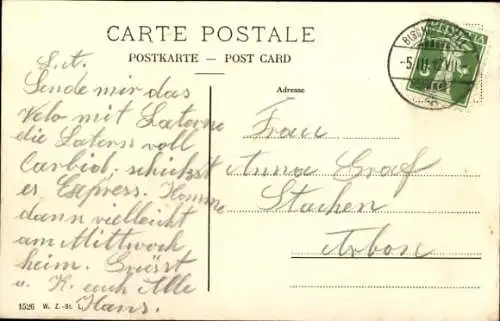 CARTE POSTALE
POSTKARTE – POST CARD
Adresse
L. A.
Sende mir das
Velo mit Laterne
die Latern voll
Carbid; schickst
es Express. Komme
dann vielleicht
am Mittwoch
heim. Grüsst
u. K. euch Alle
Hans.
Frau
Anna Graf
Stachen
Arbon
1526 W. Z.-St. L.